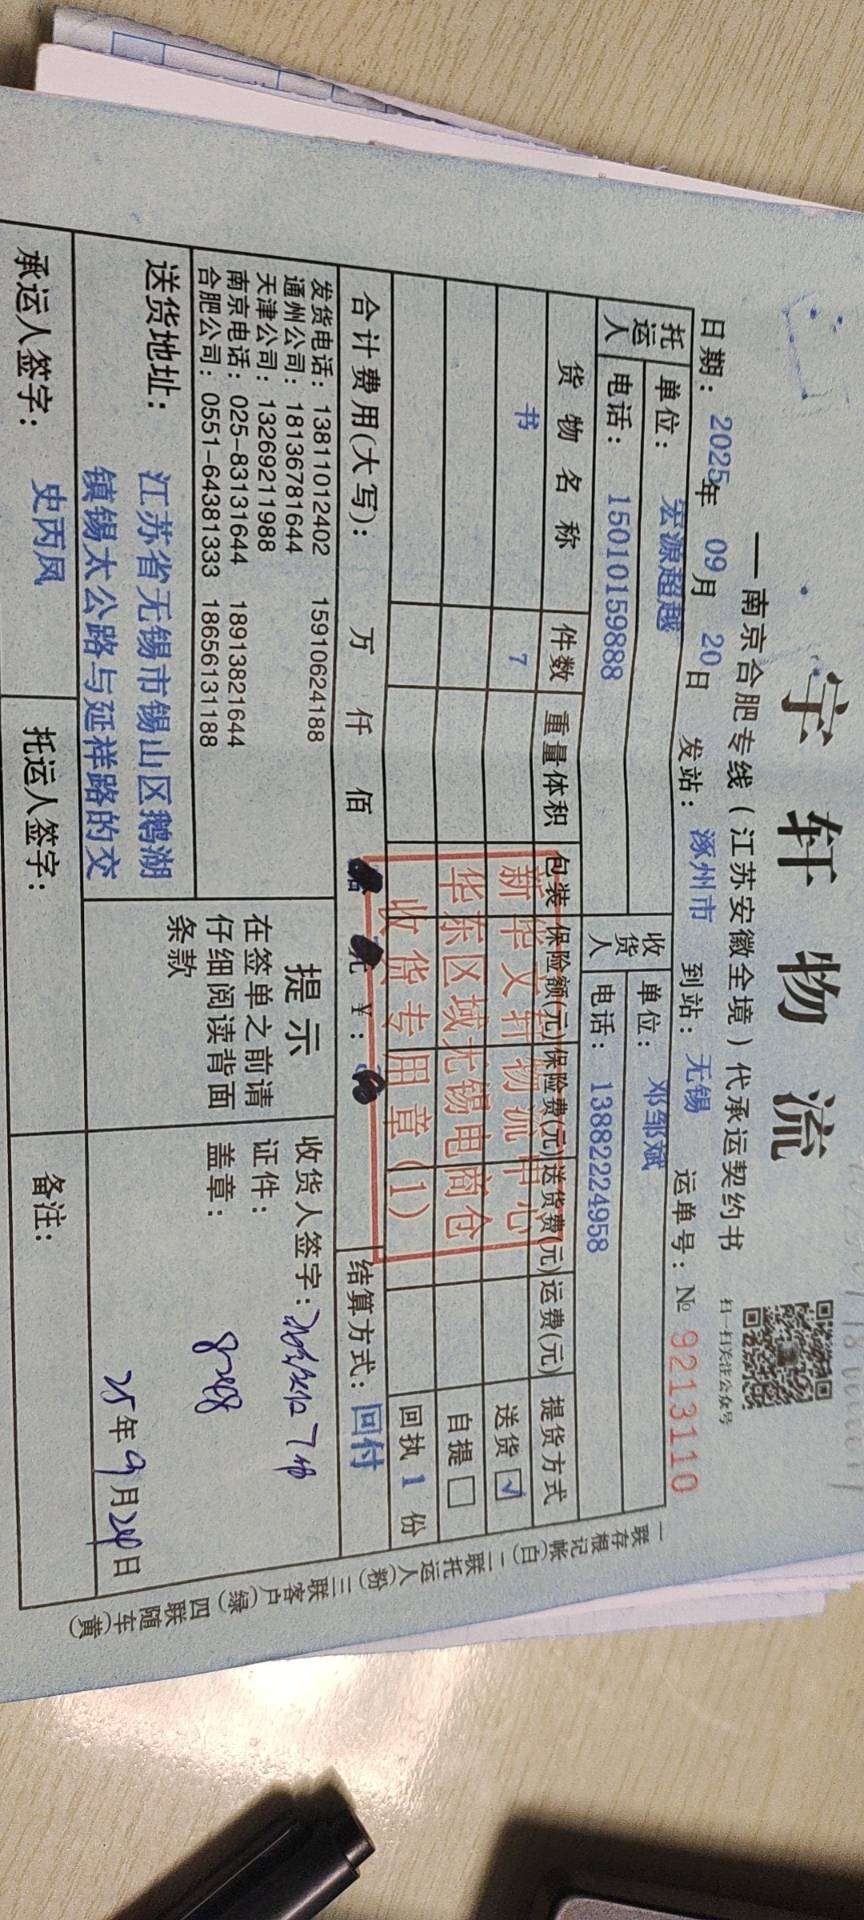 宇轩物流
—南京合肥专线（江苏安徽全境）代承运契约书
扫一扫关注公众号
日期：2025年 09月 20日 发站：涿州市 到站：无锡 运单号：№ 9213110
托运人 单位：宏源超越 收货人 单位：邓邹斌
电话：15010159888 电话：13882224958
货物名称 件数 重量体积 包装 保险额(元) 保险费(元) 送货费(元) 运费(元) 提货方式
书 7 送货 ☑
自提 □
回执 1 份
新华文轩物流中心
华东区域无锡电商仓
收货专用章(1)
合计费用(大写)： 万 仟 佰 ¥： 结算方式：回付
发货电话：13811012402 15910624188
通州公司：18136781644
天津公司：13269211988
南京电话：025-83131644 18913821644
合肥公司：0551-64381333 18656131188
提示
在签单之前请
仔细阅读背面
条款
收货人签字：
证件：
盖章：
25年9月24日
送货地址：江苏省无锡市锡山区鹅湖
镇锡太公路与延祥路的交
承运人签字：史丙凤 托运人签字： 备注：
一联存根记帐(白) 二联托运人(粉) 三联客户(绿) 四联随车(黄)